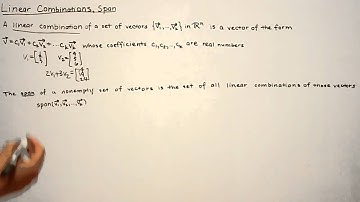 Linear Combinations, Span
A linear combination of a set of vectors {v⃗₁,...,v⃗ₖ} in ℝⁿ is a vector of the form
v⃗ = c₁v⃗₁ + c₂v⃗₂ + ... cₖv⃗ₖ whose coefficients c₁, c₂, ..., cₖ are real numbers
v₁ = v₂ =
2v₁ + 3v₂ =
The span of a nonempty set of vectors is the set of all linear combinations of those vectors
span(v⃗₁, v⃗₂, ..., v⃗ₖ)